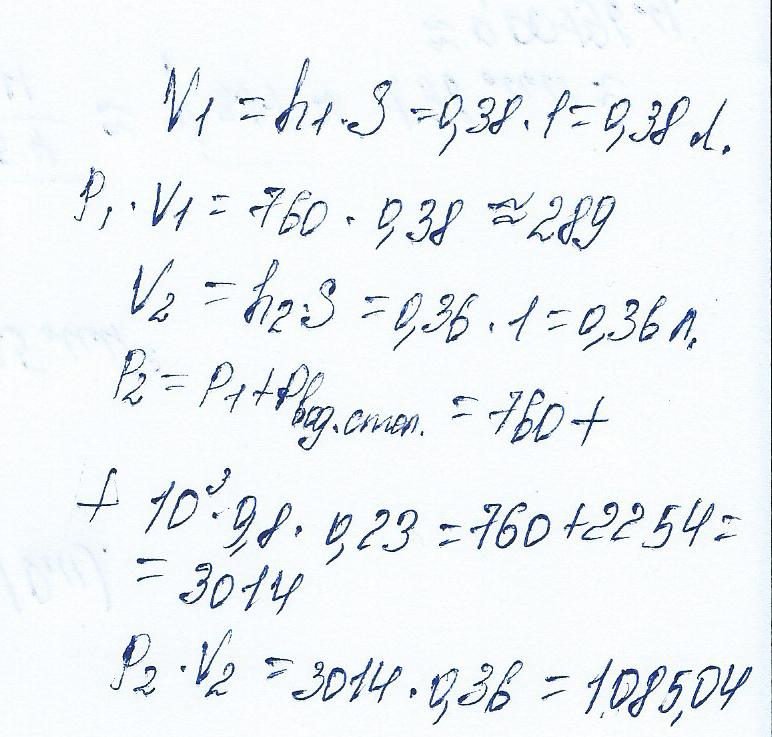 V1 = h1·S = 0,38·1 = 0,38 л.
P1·V1 = 760·0,38 ≈ 289
V2 = h2·S = 0,36·1 = 0,36 л.
P2 = P1 + Pвод.стол. = 760 +
+ 10³·9,8·0,23 = 760 + 2254 =
= 3014
P2·V2 = 3014·0,36 = 1085,04